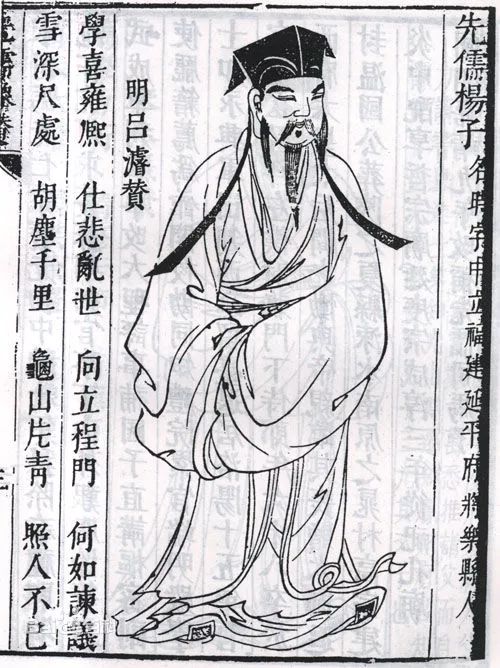 先儒楊子 名時字中立福建延平府將樂縣人
明呂濬賛
學喜雍熈 仕悲亂世 向立程門 何如諫議
雪深尺處 胡塵千里 龜山片青 照人不已